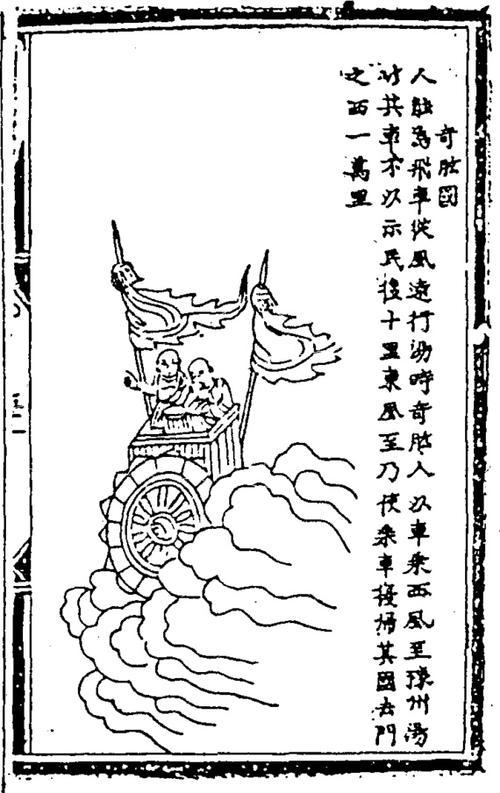 奇肱國
人能為飛車從風遠行湯時奇肱人以車乘西風至豫州湯
其車不以示民後十里東風至乃使乘車復歸其國去門
之西一萬里